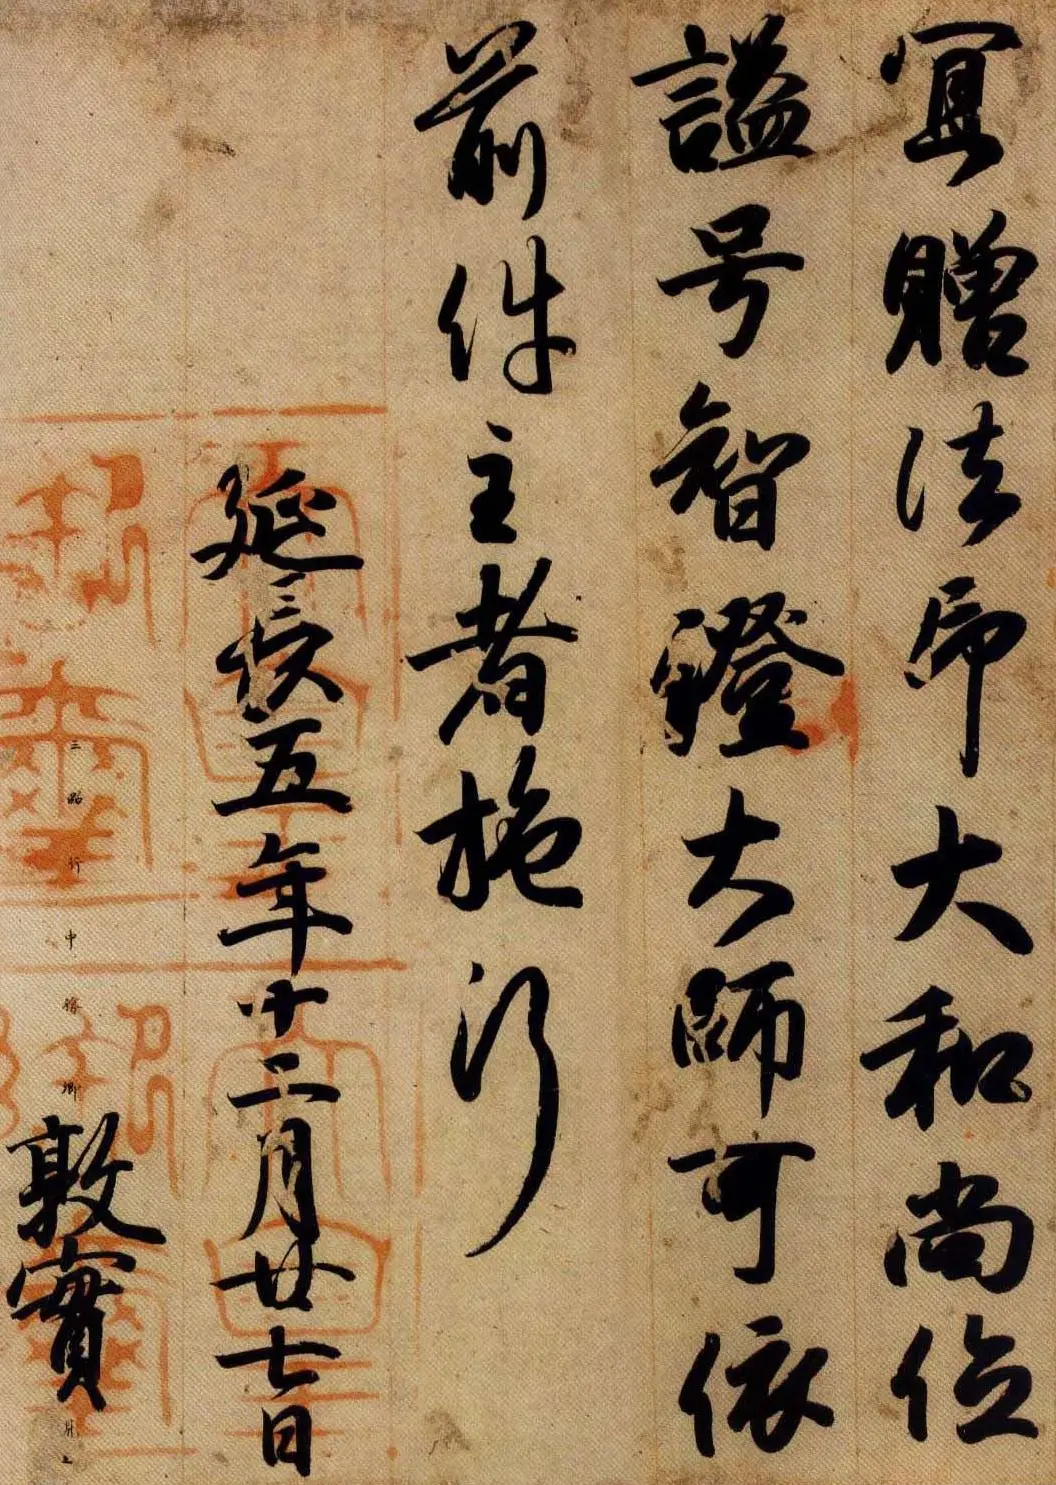 冝贈法印大和尚位
謚号智證大師可依
前件主者施行
延長五年十二月廿七日
三品行中務卿敦實